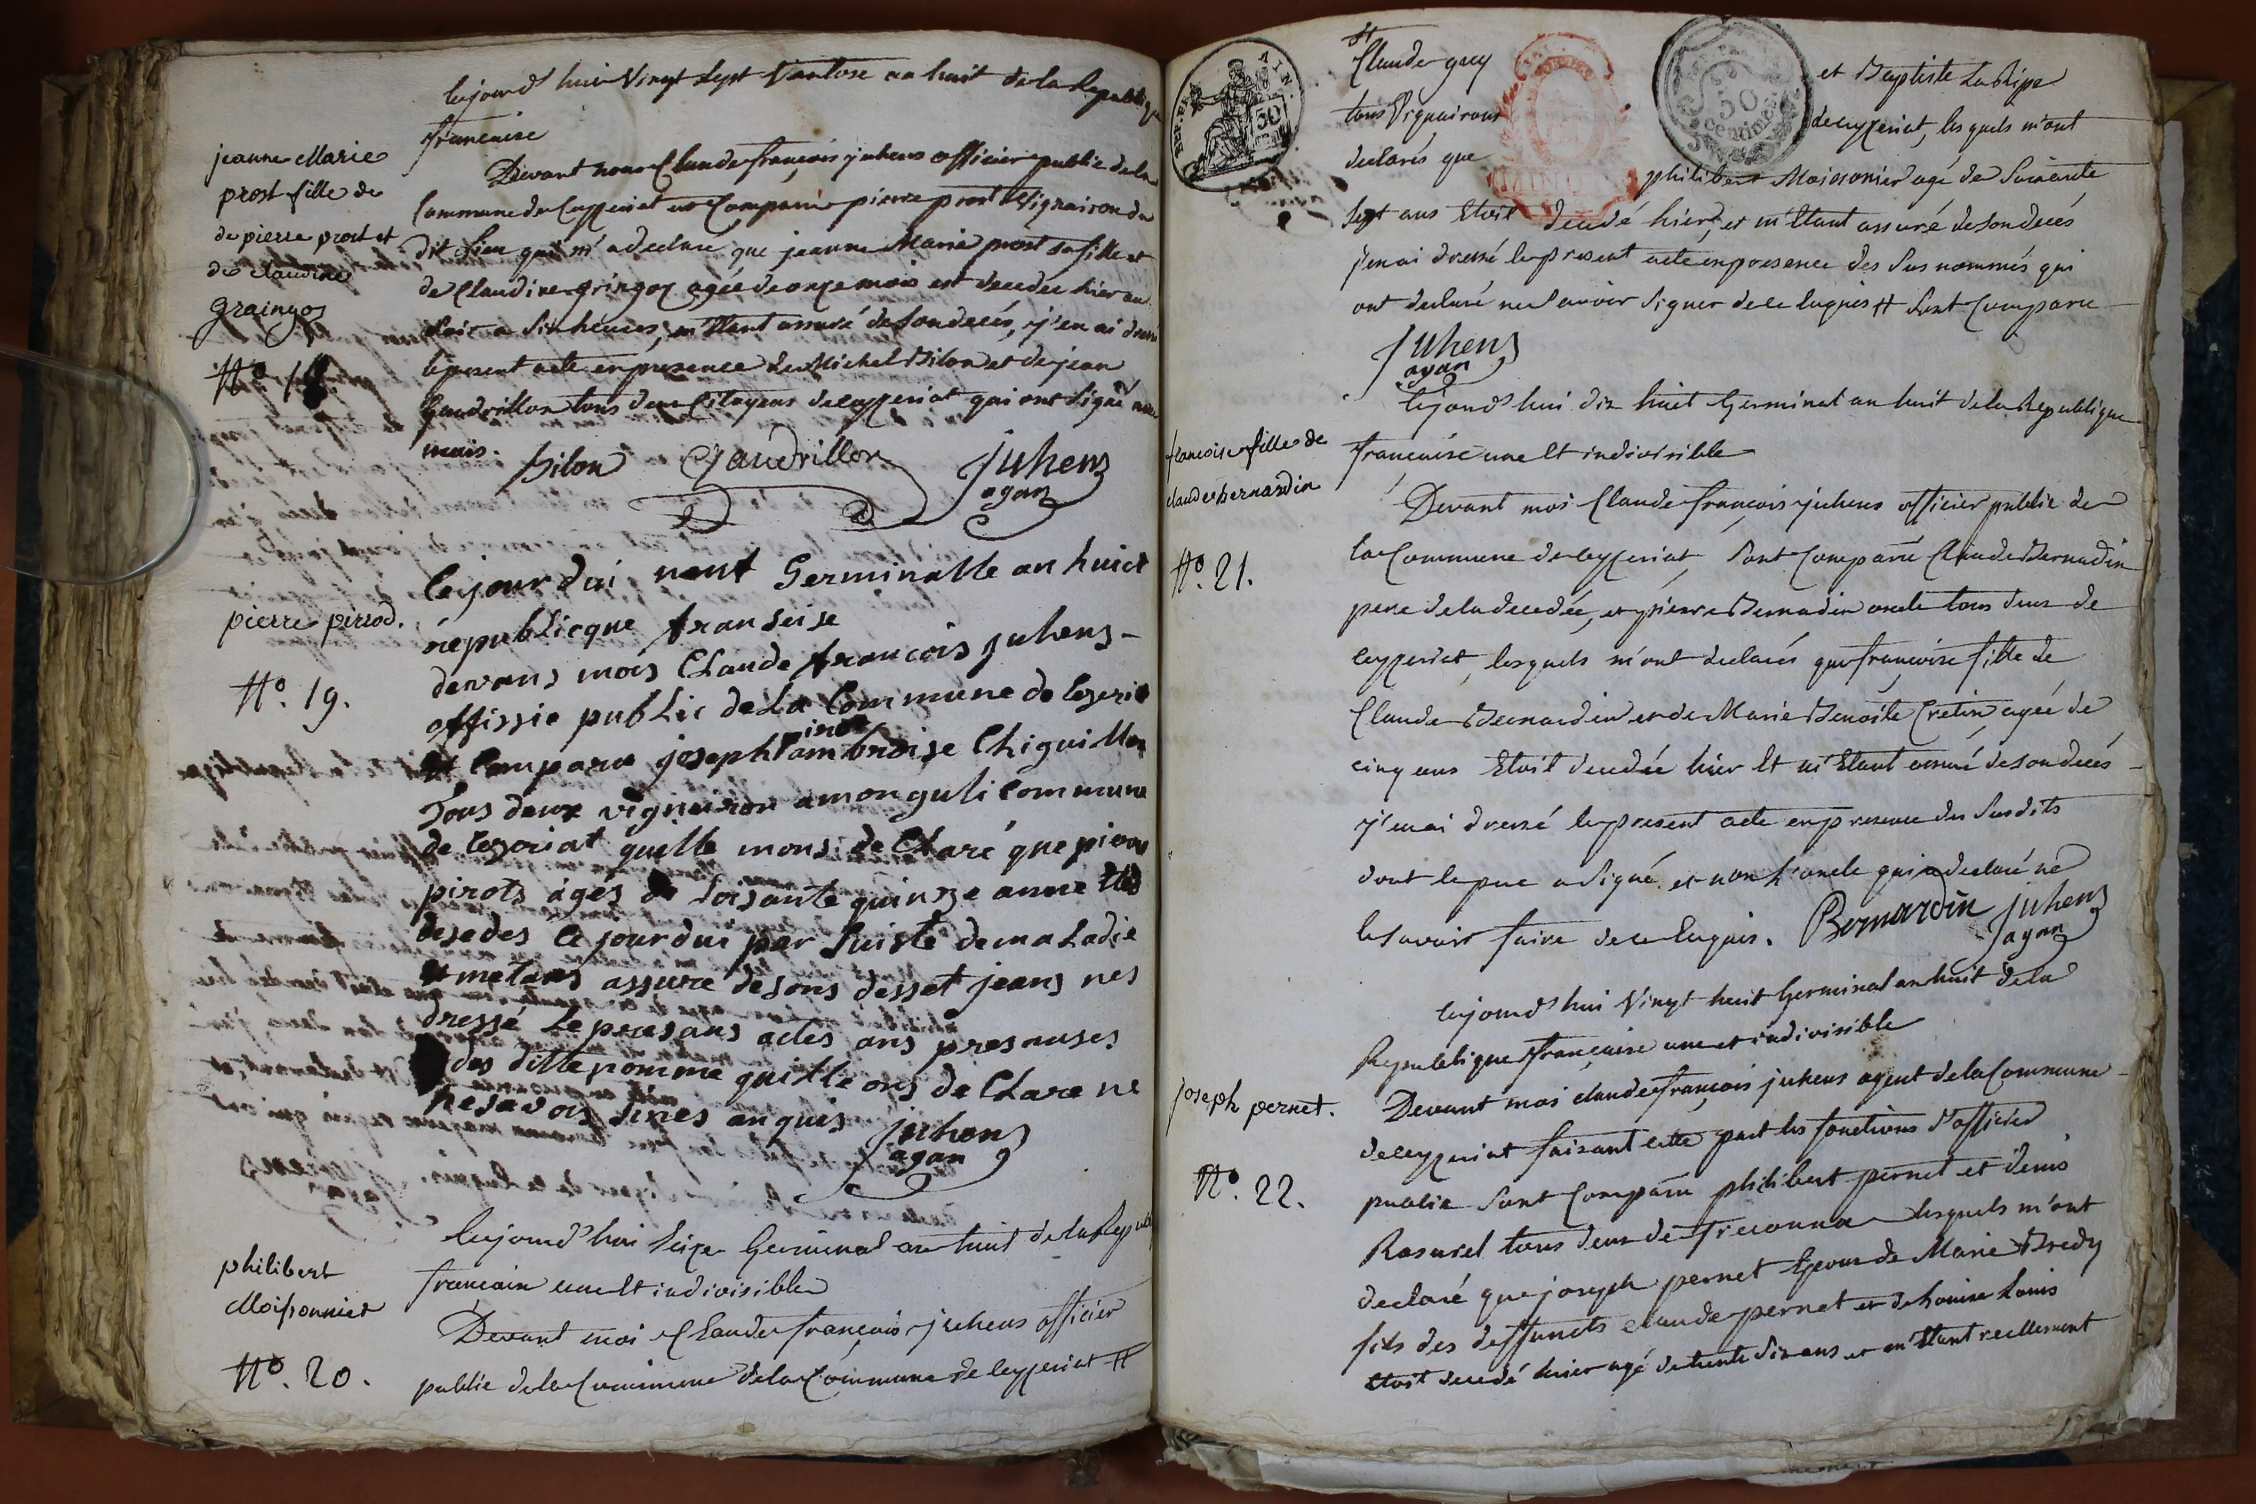 Cejourd'hui Vingt Sept Vantose an huit de la Republique
francaise
jeanne Marie
prost fille de
de pierre prost et
de claudine
graingoz
N° 18
Devant nous Claude françois juhens officier public de la
Commune de Ceyzeriat est Comparu pierre prost Vigneron du
dit Lieu qui m'a declare que jeanne Marie prost sa fille et
de Claudine gringoz agée de onze mois est decedée hier au
soir a six heures, m'Etant assuré de son decés, j'en ai dressé
le present acte en presence de Michel Bilon et de jean
Gaudrillon tous deux Citoyens de ceyzeriat qui ont signé avec
mois.
Bilon Gaudrillon juhens
agan
pierre pirrod.
N°. 19.
Cejourdui neuf Germinalle an huict
republicque franseise
devans mois Claude francois juhens
offissie public de La Commune de Ceseria
et Comparu joseph ambroise Chiguillon
Tous deux vignairon a monguli Commune
de Ceseriat quille mons de Claré que pierre
pirots ages de soisante quinsze anne
desedes Ce jourdui par suiste de maladie
et metans assure desons desset jeans nes
dressé Le presans actes ans presanses
des ditte nomme quille ons de Clare ne
ne savois sines anquis juhens
agan
philibert
Moissonnier
N°. 20.
Cejourd'hui Seize Germinal an huit de la Republi
francaise une Et indivisible
Devant moi Claude françois juhens officier
public de la Commune de la Commune de ceyzeriat #
st
Claude grey
tous Vignairons
declarés que
et Baptiste LaRippe
de ceyzeriat, lesquels m'ont
philibert Moissonier agé de Soixante
Sept ans Etoit decedé hier, et m'Etant assuré de son decés
j'en ai dressé le present acte en presence des Sus nommés qui
ont declaré ne Savoir Signer de ce Enquis # Sont Comparu
juhens
agan
francoise fille de
claude bernardin
N°. 21.
Cejourd'hui dix huit Germinal an huit de la Republique
francaise une Et indivisible
Devant moi Claude françois juhens officier public de
la Commune de ceyzeriat, Sont Comparu Claude Bernardin
pere de la decedée, et pierre Bernardin oncle tous deux de
ceyzeriat, lesquels m'ont declarés que francoise fille de
Claude Bernardin et de Marie Benoite Cretin agée de
cinq ans Etoit decedée hier Et m'Etant assuré de son decés
j'en ai dressé le present acte en presence des Susdits
dont le pere a Signé. et non L'oncle qui a declaré ne
le Savoir faire de ce Enquis. Bernardin juhens
agan
joseph pernet.
N°. 22.
Cejourd'hui Vingt huit Germinal an huit de la
Republique francaise une et indivisible
Devant moi claude françois juhens agent de la Commune
de ceyzeriat faisant cette part les fonctions d'officier
public Sont Comparu philibert pernet et denis
Rasurel tous deux de Treconna lesquels m'ont
declaré que joseph pernet Epoux de Marie Bredy
fils des deffuncts claude pernet et de Louise Louis
Etoit decedé hier agé de trente dix ans et m'Etant reellement